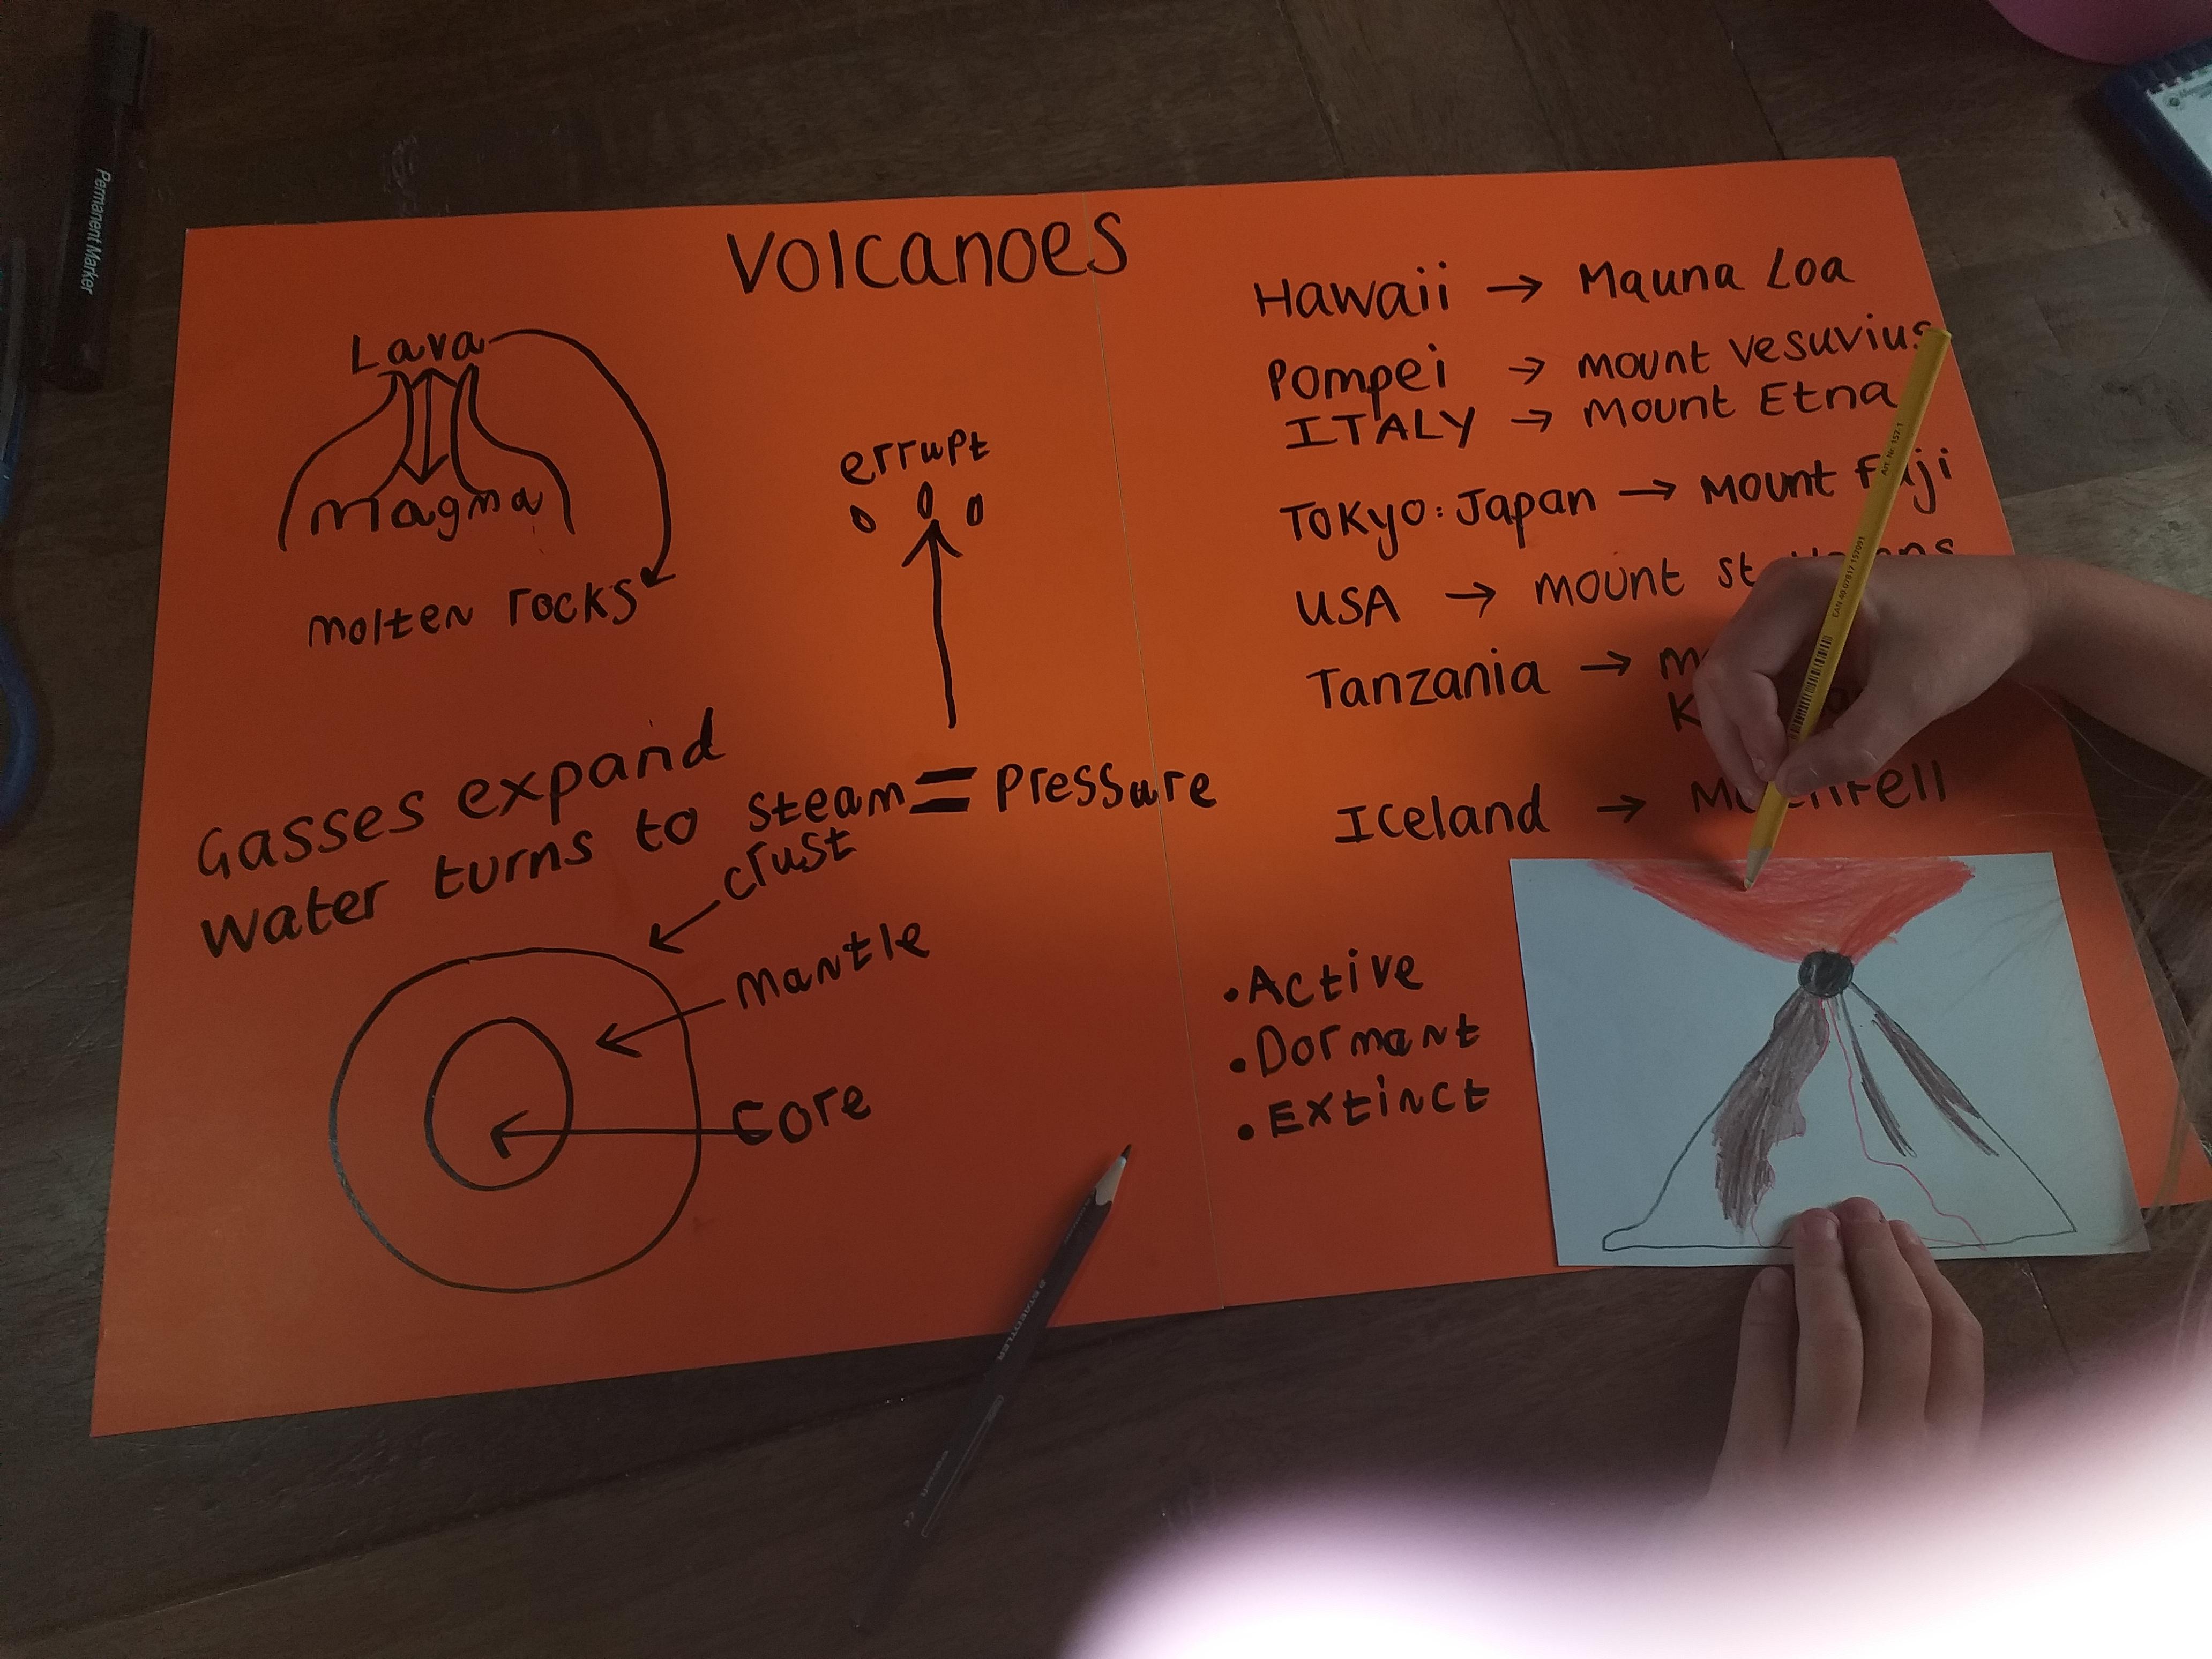 Volcanoes
Lava
Magma
Molten rocks
errupt
Gasses expand
water turns to steam = Pressure
crust
Mantle
Core
Hawaii → Mauna Loa
Pompei → Mount Vesuvius
ITALY → Mount Etna
Tokyo: Japan → Mount Fuji
USA → Mount St
Tanzania →
Iceland →
• Active
• Dormant
• Extinct
Permanent Marker
STAEDTLER
Art. Nr. 157-1
EAN 40 07817 157091